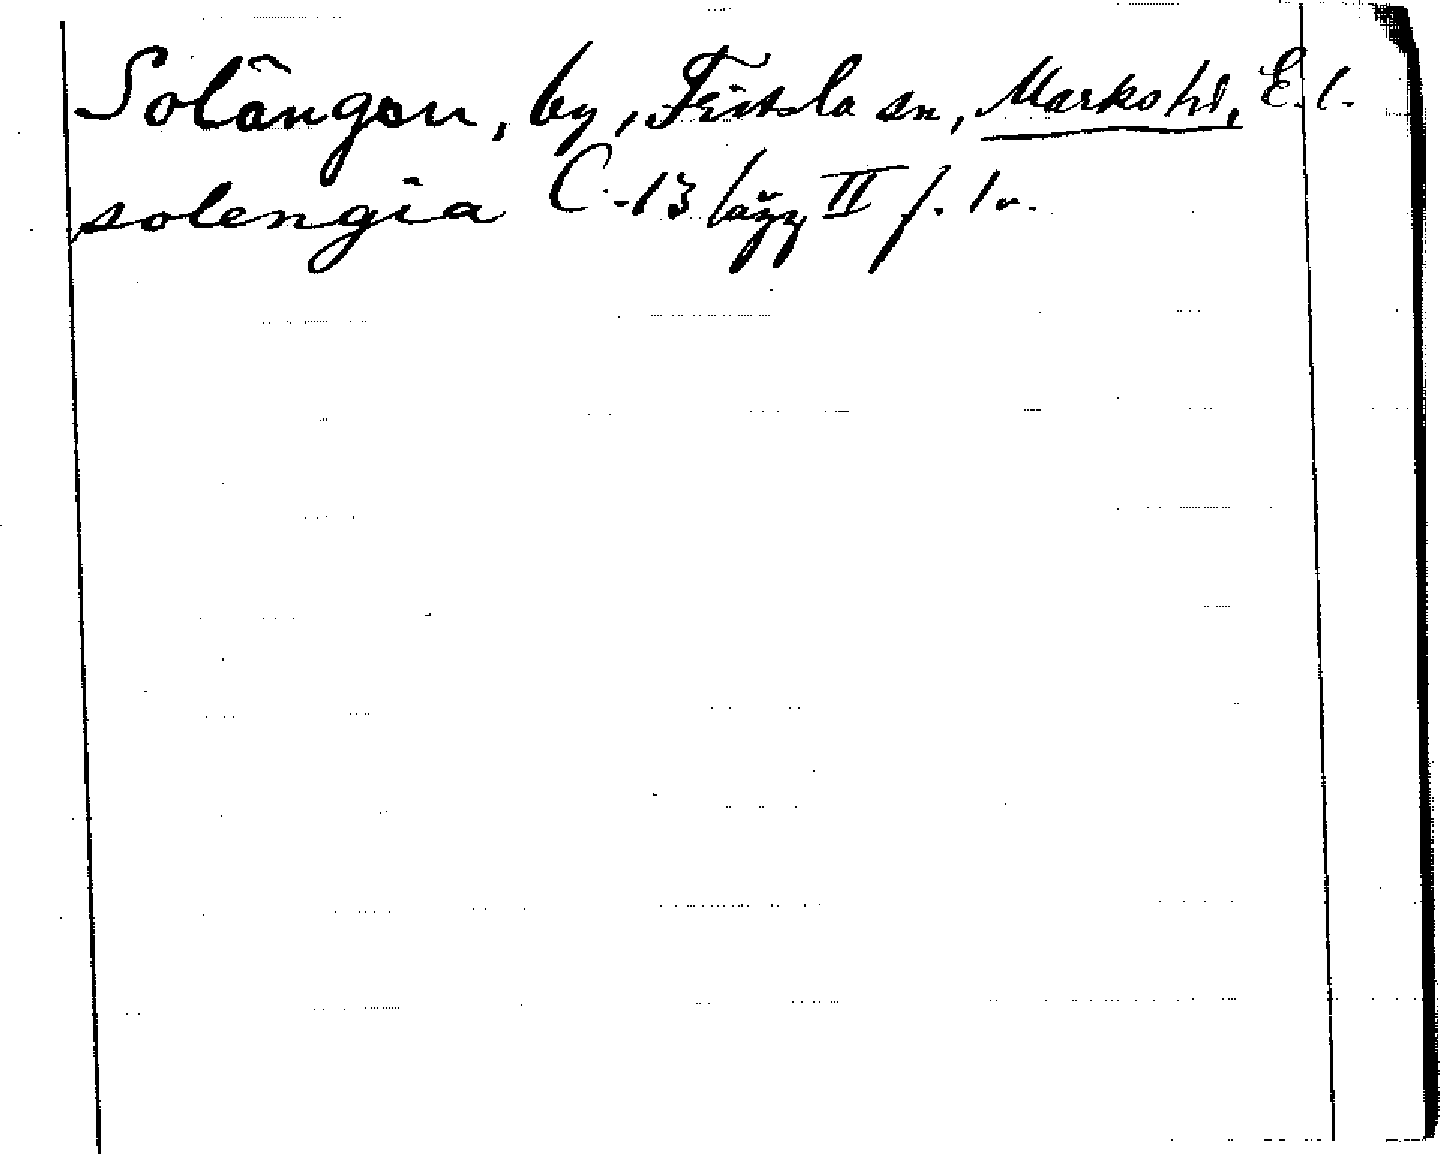 Solången, by, Fristla sn, Marks hd, E. l.
solengia C-13 lägg II f. 1v.